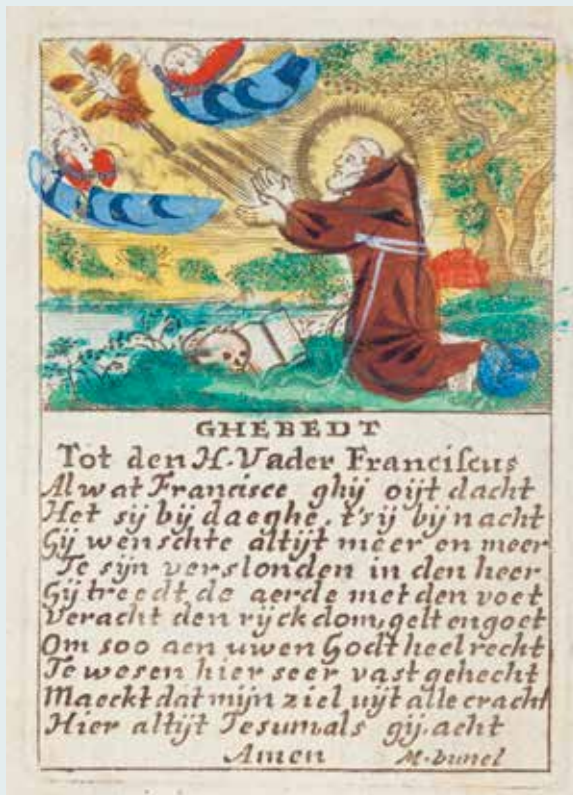 GHEBEDT
Tot den H. Vader Franciſcus
Al wat Francisce ghij oijt dacht
Het sij bij daeghe, t'sij bij nacht
Gij wenschte altijt meer en meer
Te sijn verslonden in den heer
Gij treedt de aerde met den voet
Veracht den rijckdom, gelt en goet
Om soo aen uwen Godt heel recht
Te wesen hier seer vast gehecht
Maeckt dat mijn ziel uijt alle cracht
Hier altijt Jesum als gij acht
Amen M. bunel